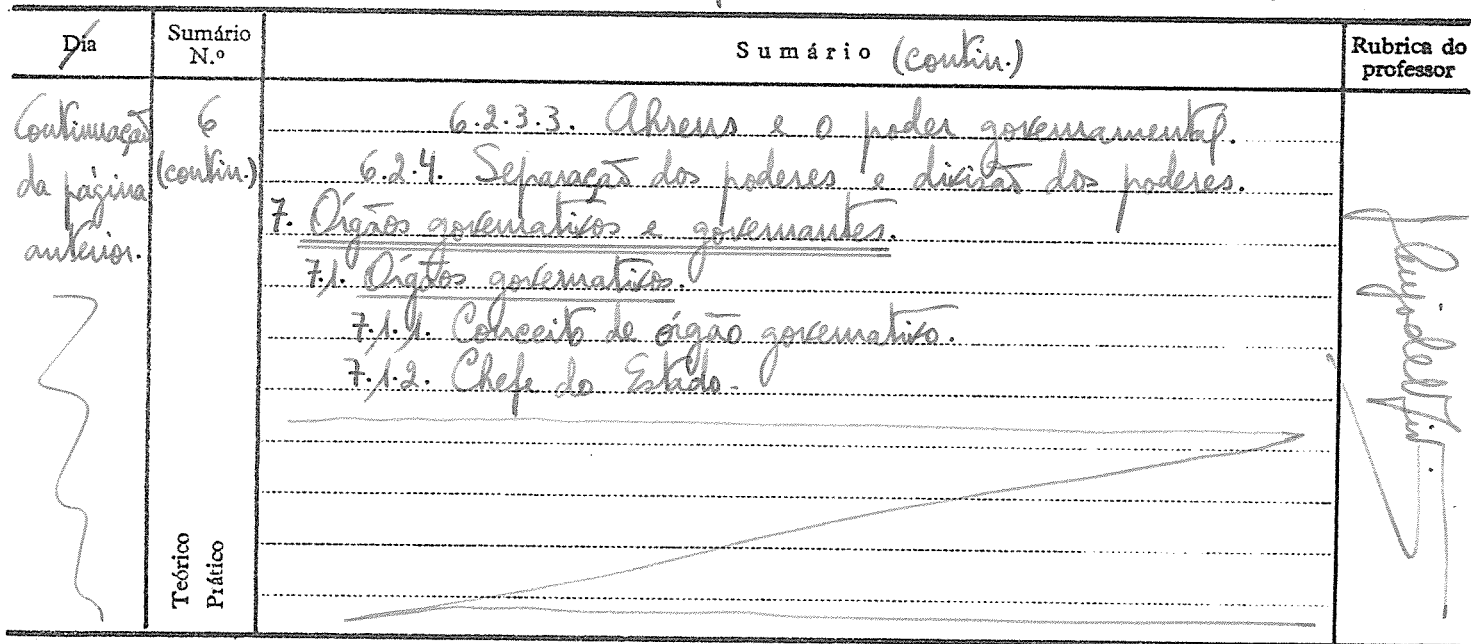 Dia
Sumário N.º
Sumário (contin.)
Rubrica do professor
Continuação da página anterior.
6 (contin.)
6.2.3.3. Ahrens e o poder governamental.
6.2.4. Separação dos poderes e divisão dos poderes.
7. Órgãos governativos e governantes.
7.1. Órgãos governativos.
7.1.1. Conceito de órgão governativo.
7.1.2. Chefe do Estado.
Teórico
Prático